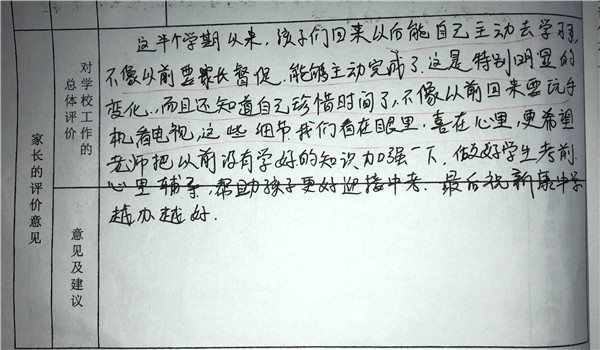 家长的评价意见
对学校工作的总体评价
意见及建议
这半个学期以来，孩子们回来以后能自己主动去学习，
不像以前要家长督促，能够主动完成了，这是特别明显的
变化，而且还知道自己珍惜时间了，不像以前回来要玩手
机看电视，这些细节我们看在眼里，喜在心里，更希望
老师把以前没有学好的知识加强一下，做好学生考前
心里辅导，帮助孩子更好迎接中考．最后祝新康中学
越办越好．